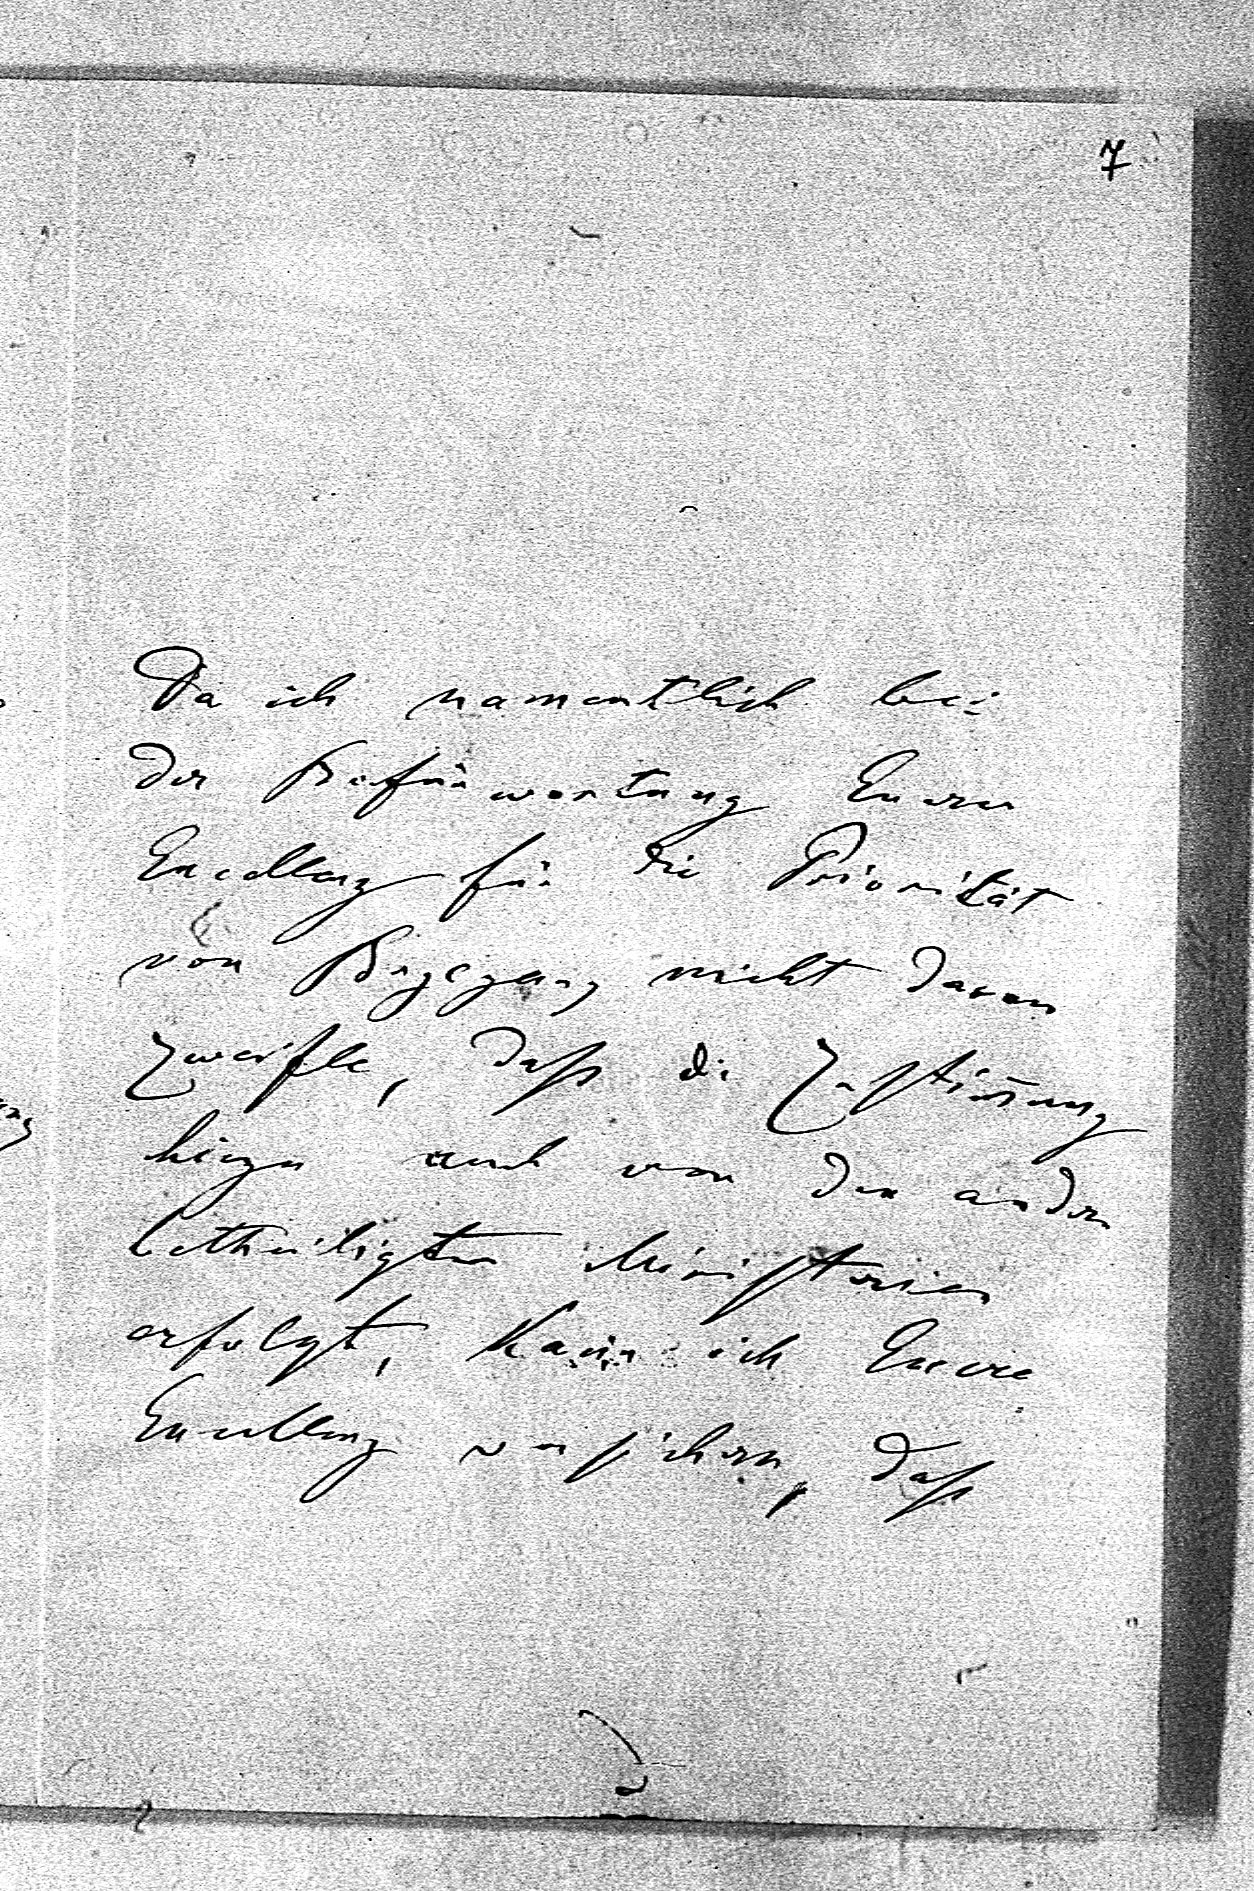 7
Da ich namentlich bei
der Befürwortung Eurer
Excellenz für die Priorität
von nicht daran
zweifle, daß die Zustimmung
hiezu auch von den andern
betheiligten Ministerien
erfolgt, kann ich Euere
Excellenz versichern, daß